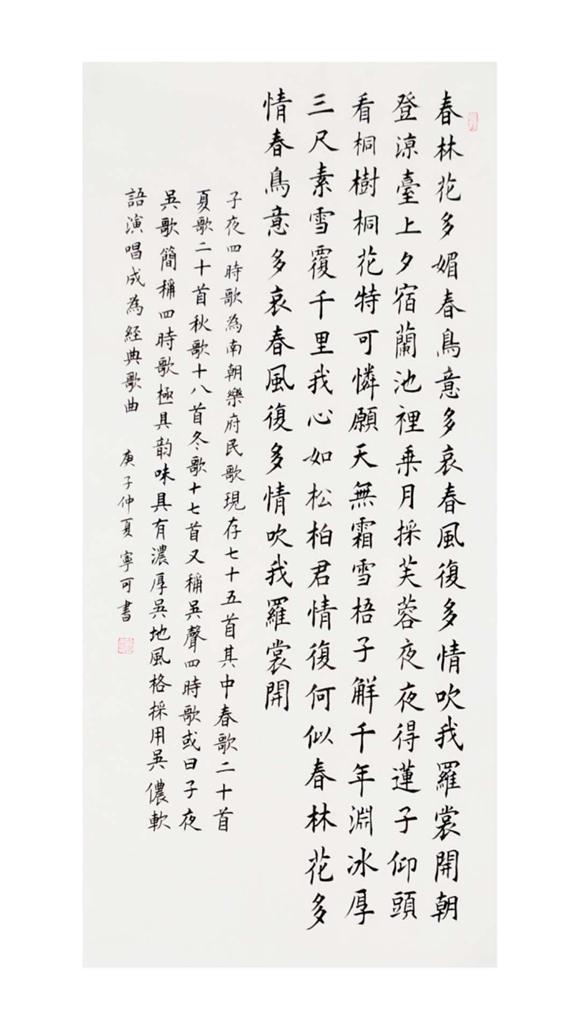 春林花多媚春鳥意多哀春風復多情吹我羅裳開朝
登涼臺上夕宿蘭池裡乘月採芙蓉夜夜得蓮子仰頭
看桐樹桐花特可憐願天無霜雪梧子解千年淵冰厚
三尺素雪覆千里我心如松柏君情復何似春林花多
情春鳥意多哀春風復多情吹我羅裳開
子夜四時歌為南朝樂府民歌現存七十五首其中春歌二十首
夏歌二十首秋歌十八首冬歌十七首又稱吳聲四時歌或曰子夜
吳歌簡稱四時歌極具韵味具有濃厚吳地風格採用吳儂軟
語演唱成為經典歌曲 庚子仲夏寧可書